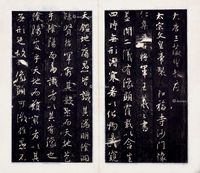 大唐三藏聖教序
太宗文皇帝製弘福寺沙門懷
仁集晉右將軍王羲之書
蓋聞二儀有像顯覆載以含生
四時無形潛寒暑以化物是以窺
天鑑地庸愚皆識其端明陰洞
陽賢哲罕窮其數然而天地苞
乎陰陽而易識者以其有像也
陰陽處乎天地而難窮者以其
無形也故知像顯可徵雖愚不